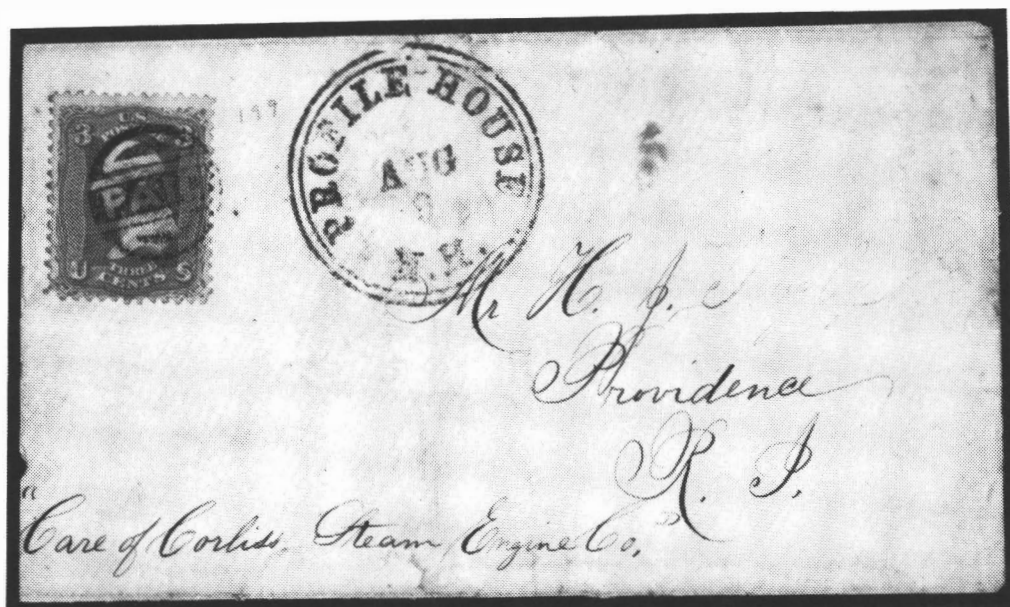 3 U.S. 3
PAID
U THREE S
CENTS
199
PROFILE HOUSE
AUG
N.H.
Mr H. J.
Providence
R. I.
"Care of Corliss. Steam Engine Co."